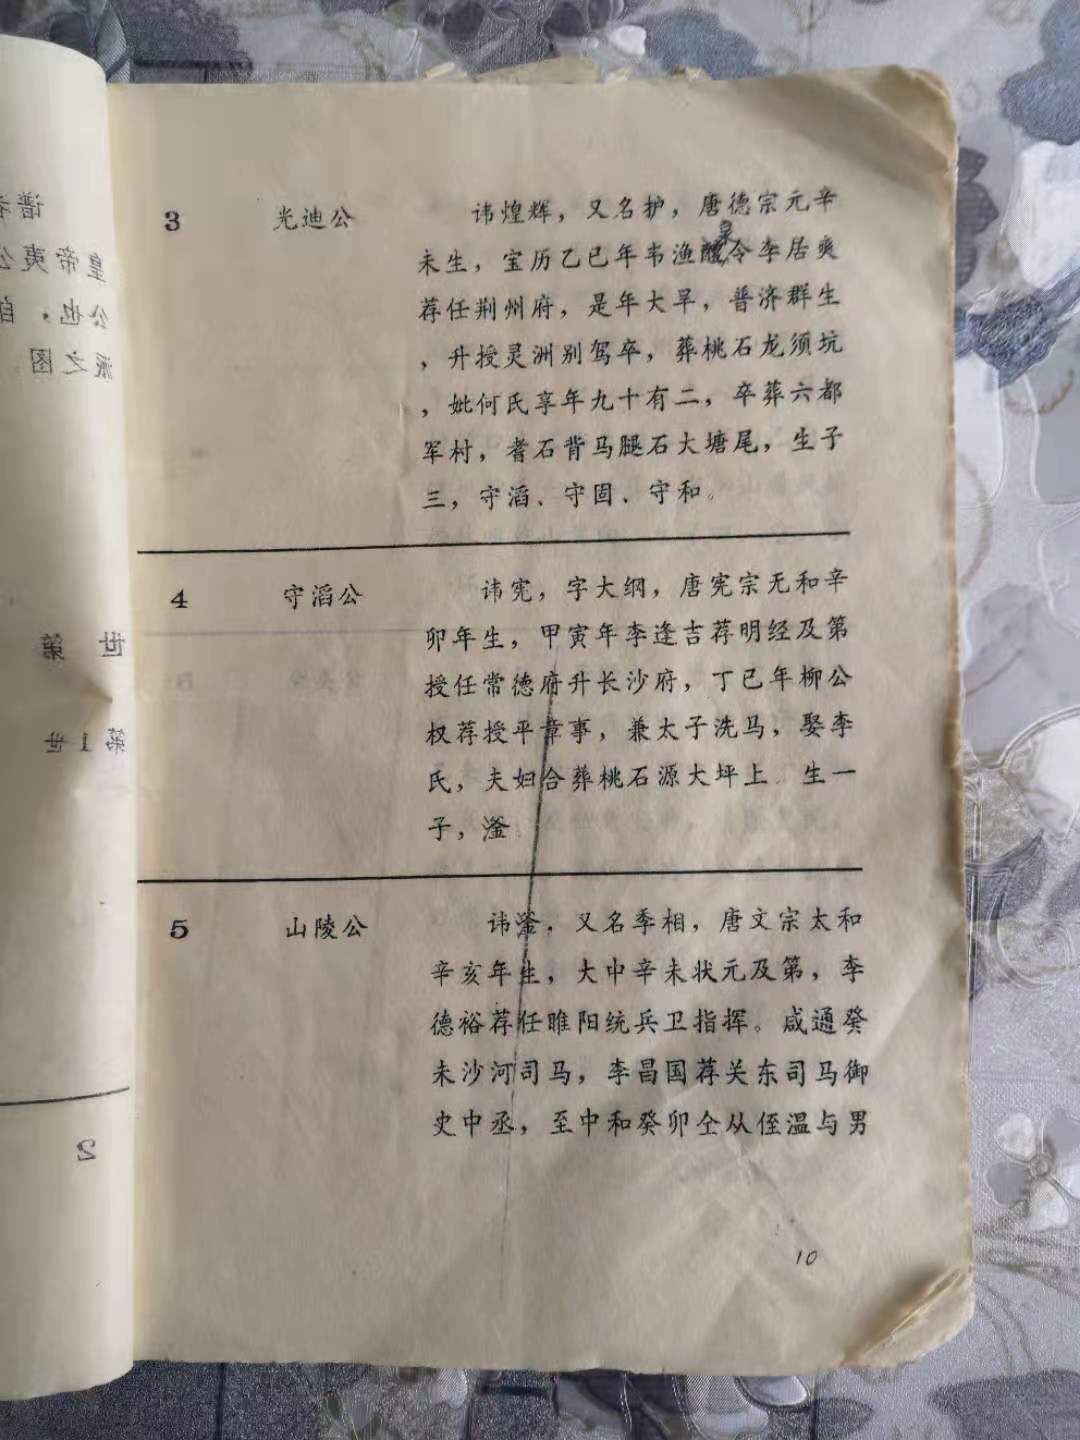 3 光迪公 讳煌辉，又名护，唐德宗元辛
未生，宝历乙巳年韦渔令李居爽
荐任荆州府，是年大旱，普济群生
，升授灵洲别驾卒，葬桃石龙须坑
，妣何氏享年九十有二，卒葬六都
军村，耆石背马腿石大塘尾，生子
三，守滔、守固、守和。
4 守滔公 讳宪，字大纲，唐宪宗无和辛
卯年生，甲寅年李逢吉荐明经及第
授任常德府升长沙府，丁巳年柳公
权荐授平章事，兼太子洗马，娶李
氏，夫妇合葬桃石源大坪上 生一
子，滏
5 山陵公 讳滏，又名季相，唐文宗太和
辛亥年生，大中辛未状元及第，李
德裕荐任睢阳统兵卫指挥。咸通癸
未沙河司马，李昌国荐关东司马御
史中丞，至中和癸卯仝从侄温与男
10
谱
皇帝夷公
公也，自
派之图
世 第
第1世
2